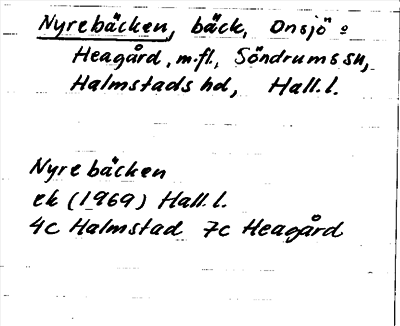 Nyrebäcken, bäck, Onsjö o
Heagård, m.fl., Söndrums sn,
Halmstads hd, Hall. l.
Nyrebäcken
ek (1969) Hall. l.
4c Halmstad 7c Heagård